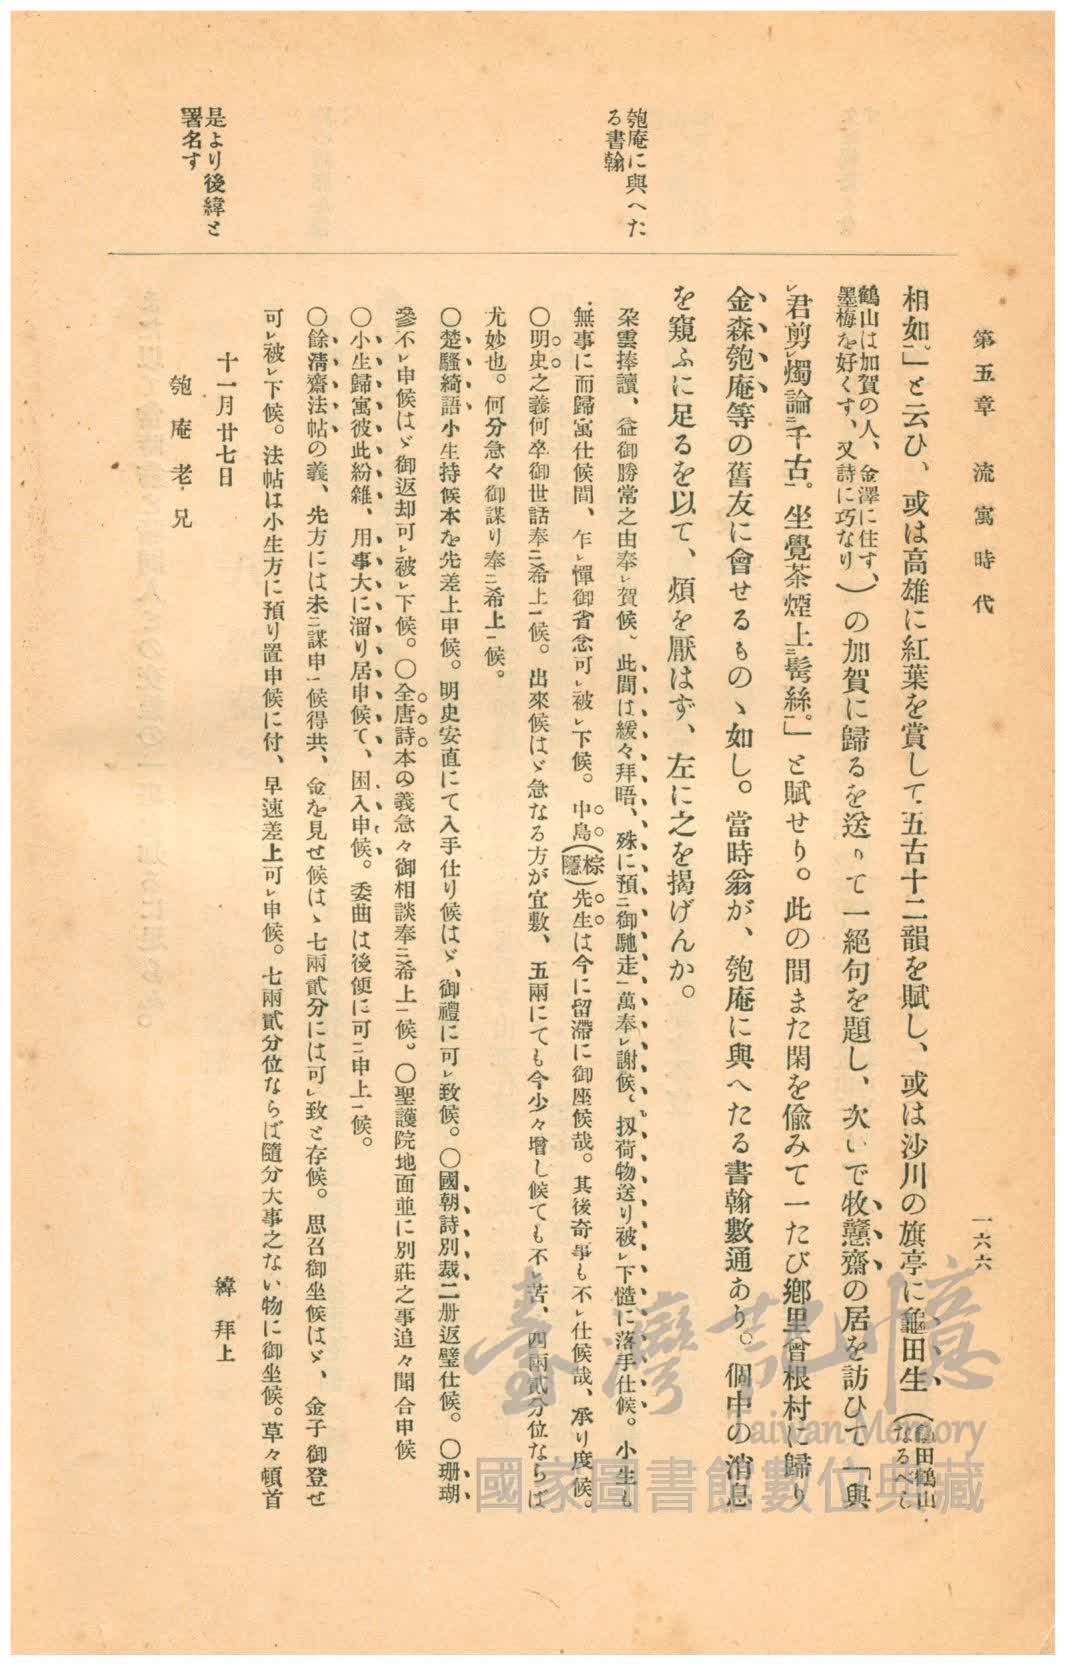 第五章　流寓時代
一六六
相如。」と云ひ、或は高雄に紅葉を賞して五古十二韻を賦し、或は沙川の旗亭に龜田生（龜田鶴山なるべし
鶴山は加賀の人、金澤に住す、墨梅を好くす、又詩に巧なり）の加賀に歸るを送りて一絶句を題し、次いで牧戇齋の居を訪ひて「與
レ君剪レ燭論二千古一。坐覺茶煙上二髩絲一。」と賦せり。此の間また閑を偸みて一たび郷里曾根村に歸り
金森匏庵等の舊友に會せるものゝ如し。當時翁が、匏庵に與へたる書翰數通あり。個中の消息
を窺ふに足るを以て、煩を厭はず、左に之を揭げんか。
匏庵に與へた
る書翰
朶雲捧讀、益御勝常之由奉レ賀候、此間は緩々拜晤、殊に預二御馳走一萬奉レ謝候、扨荷物送り被レ下慥に落手仕候。小生も
無事に而歸寓仕候間、乍レ憚御省念可レ被レ下候。中島（棕隱）先生は今に留滯に御座候哉。其後奇事も不レ仕候哉、承り度候。
〇明史之義何卒御世話奉二希上一候。出來候はゞ急なる方が宜敷、五兩にても今少々增し候ても不レ苦、四兩貳分位ならば
尤妙也。何分急々御謀り奉二希上一候。
〇楚騷綺語小生持候本を先差上申候。明史安直にて入手仕り候はゞ、御禮に可レ致候。〇國朝詩別裁二册返璧仕候。〇珊瑚
參不レ申候はゞ御返却可レ被レ下候。〇全唐詩本の義急々御相談奉二希上一候。〇聖護院地面並に別莊之事追々聞合申候
〇小生歸寓彼此紛雜、用事大に溜り居申候て、困入申候。委曲は後便に可二申上一候。
〇餘淸齋法帖の義、先方には未二謀申一候得共、金を見せ候はゝ七兩貳分には可レ致と存候。思召御坐候はゞ、金子御登せ
可レ被レ下候。法帖は小生方に預り置申候に付、早速差上可レ申候。七兩貳分位ならば隨分大事之ない物に御坐候。草々頓首
十一月廿七日
緯　拜上
是より後緯と
署名す
匏庵老兄
臺灣記憶
Taiwan Memory
國家圖書館數位典藏